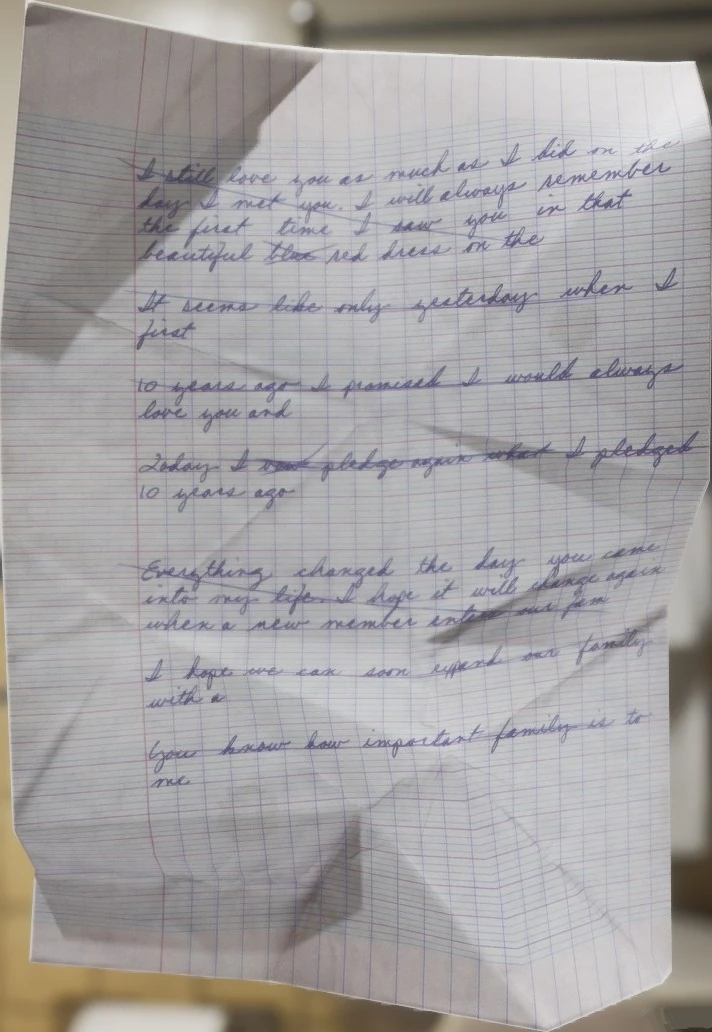 I still love you as much as I did on the
day I met you. I will always remember
the first time I saw you in that
beautiful blue red dress on the
It seems like only yesterday when I
first
10 years ago I promised I would always
love you and
Today I pledge again what I pledged
10 years ago
Everything changed the day you came
into my life. I hope it will change again
when a new member enters our fam
I hope we can soon expand our family
with a
You know how important family is to
me